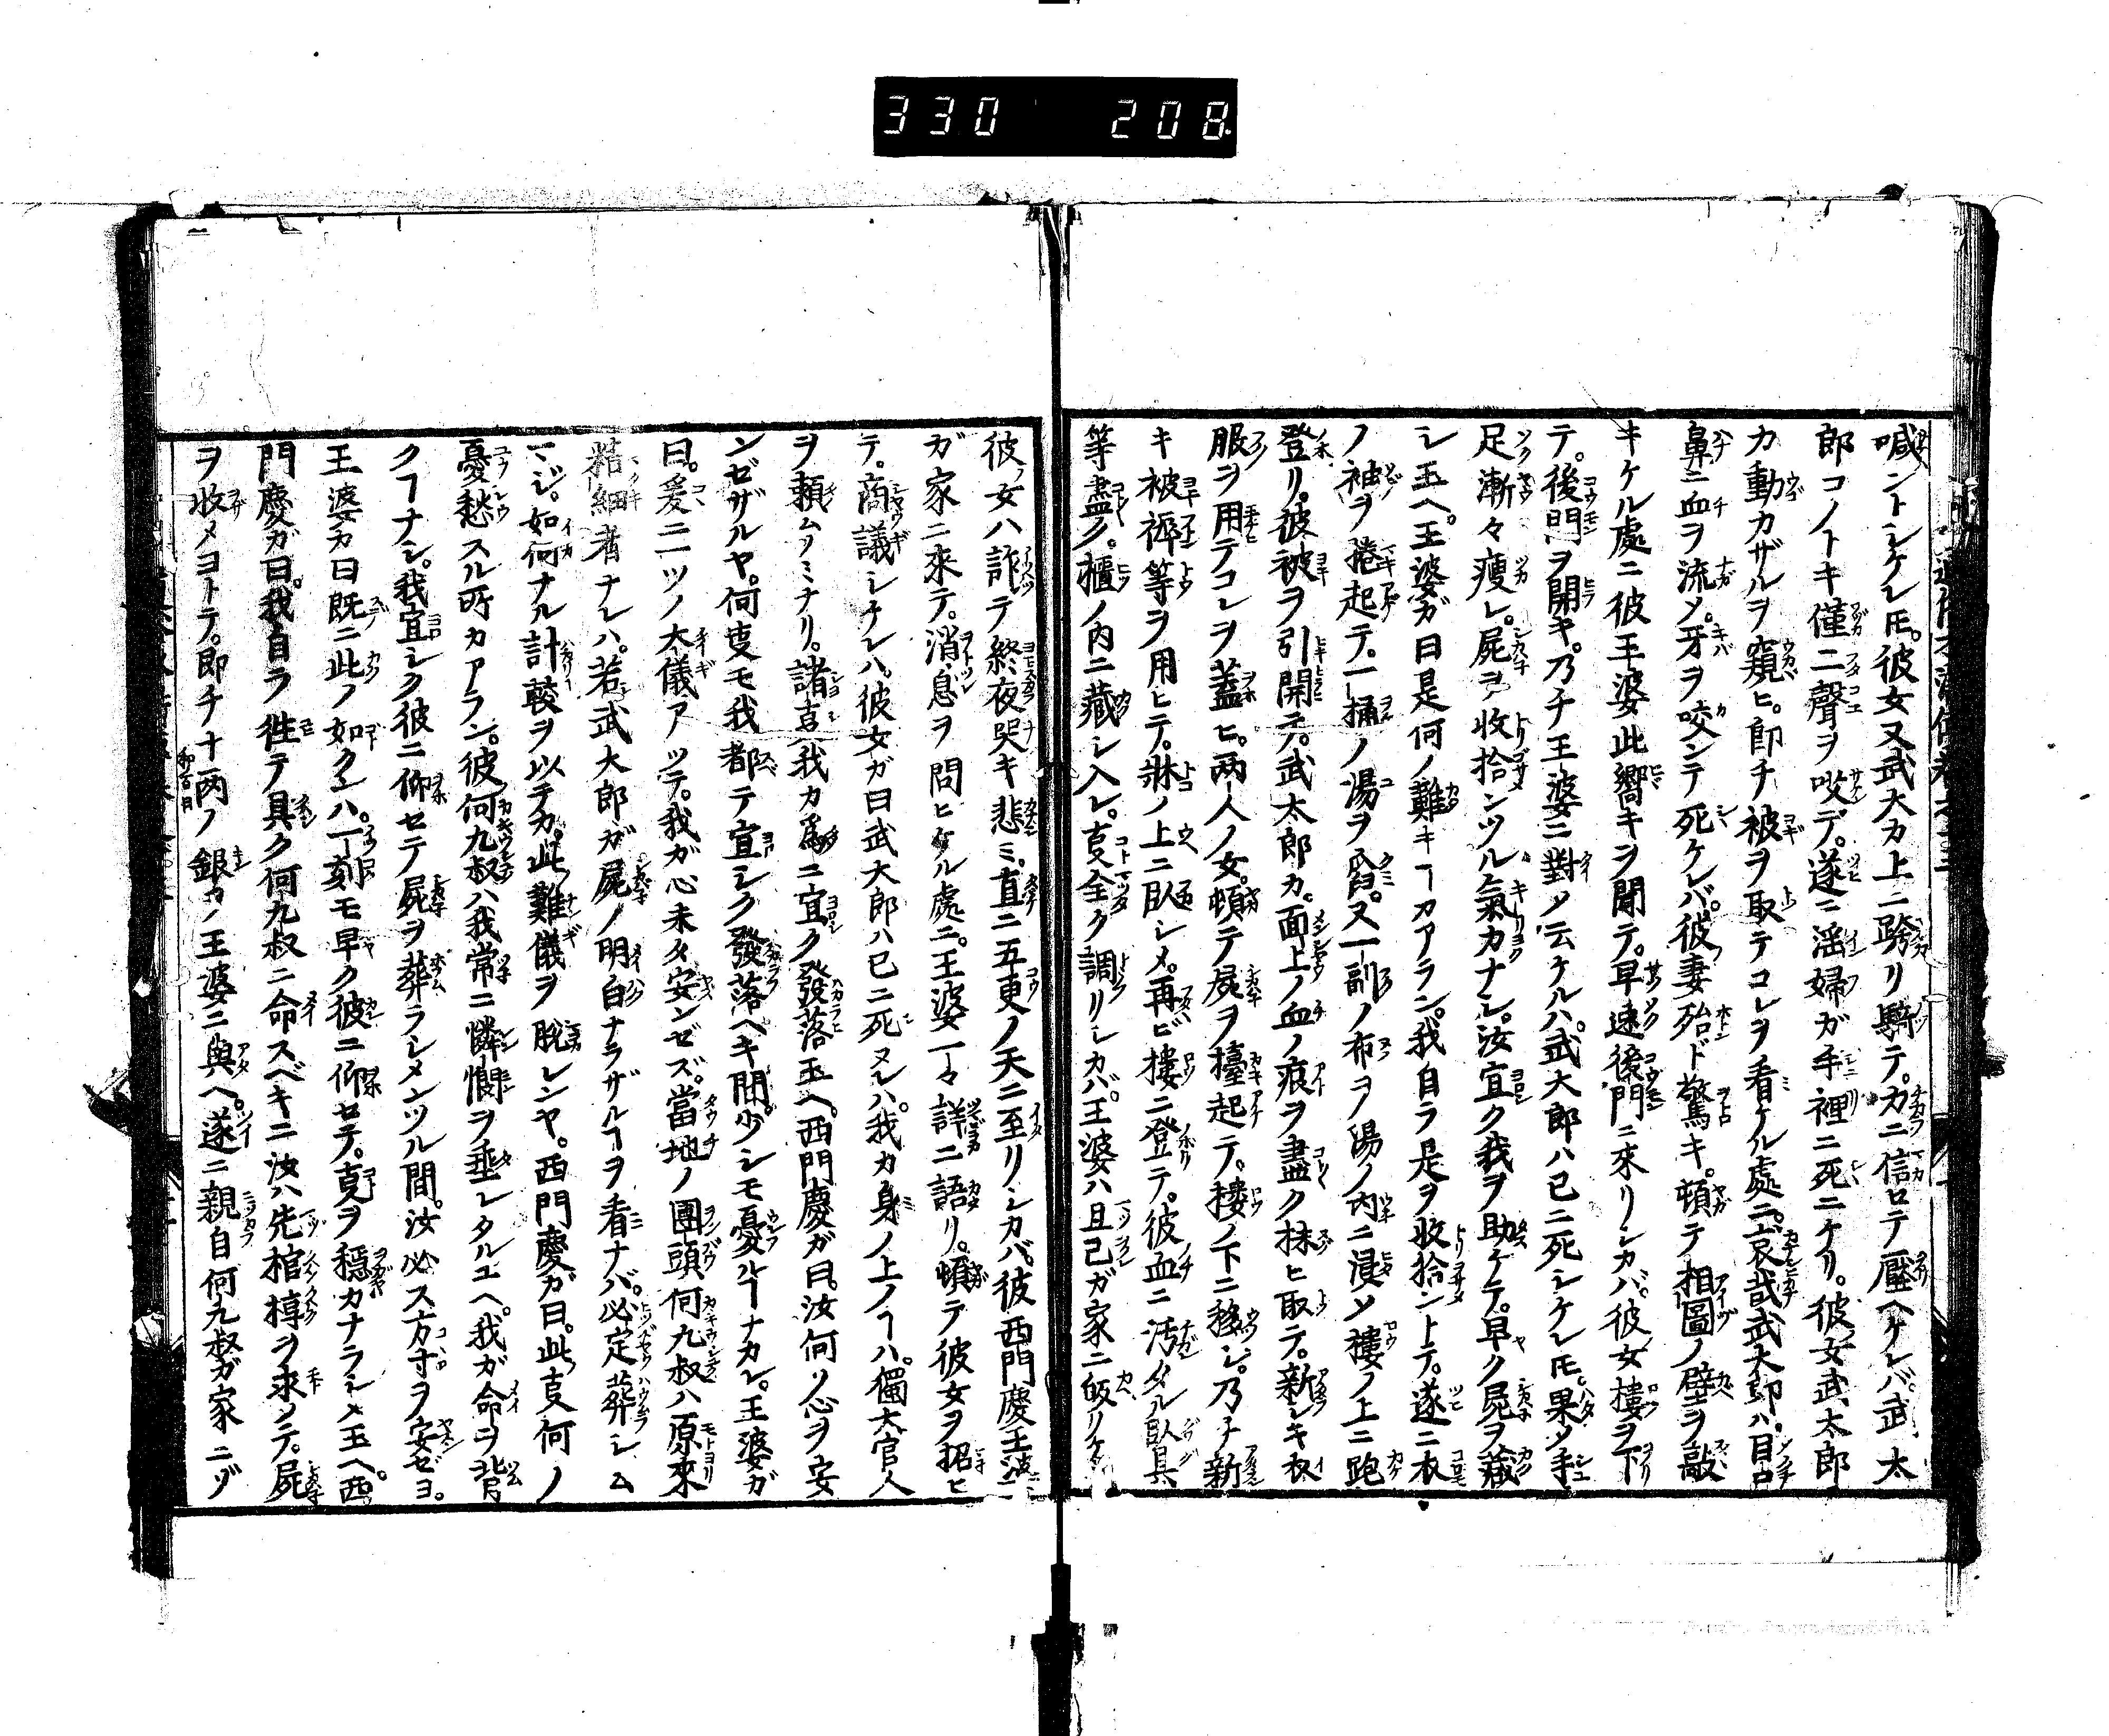 330 208
喊ントシケレ𪜈。彼女又武大カ上ニ跨リ騎テ。力ニ信ロテ壓ヘケレバ武太
郎コノトキ僅ニ二聲ヲ哎デ。遂ニ淫婦ガ手裡ニ死ニケリ。彼女武太郎
カ動カザルヲ窺ヒ。即チ被ヲ取テコレヲ看ケル處ニ。哀哉武大郎ハ。目口
鼻ニ血ヲ流メ。牙ヲ咬ンテ死ケレバ。彼妻殆ド驚キ。頓テ相圖ノ壁ヲ敲
キケル處ニ彼王婆此嚮キヲ聞テ。早速後門ニ來リシカバ。彼女樓ヲ下
テ。後門ヲ開キ。乃チ王婆ニ對メ云ケルハ。武大郎ハ已ニ死シケレ𪜈。果タ手
足漸々痩レ。屍ヲ收拾ンツル氣力ナシ。汝宜ク我ヲ助ケテ。早ク屍ヲ藏
シ玉ヘ。王婆ガ曰是何ノ難キヿカアラン。我自ラ是ヲ收拾ントテ。遂ニ衣
ノ袖ヲ捲起テ。一桶ノ湯ヲ舀。又一副ノ布ヲノ湯ノ内ニ浸ソ樓ノ上ニ跑
登リ。彼被ヲ引開テ。武太郎カ。面上ノ血ノ痕ヲ盡ク抹ヒ取テ。新シキ衣
服ヲ用テコレヲ蓋ヒ。两人ノ女。頓テ屍ヲ擡起テ。樓ノ下ニ移シ。乃チ新
キ被褥等ヲ用ヒテ。牀ノ上ニ臥シメ。再ビ樓ニ登テ。彼血ニ汚タル臥具
等盡ク。櫃ノ内ニ藏シ入レ。㕝全ク調リシカバ。王婆ハ且己ガ家ニ皈リケ
彼女ハ詐テ終夜哭キ悲ミ。直ニ五更ノ天ニ至リシカバ。彼西門慶王婆
ガ家ニ來テ。消息ヲ問ヒケル處ニ。王婆一々詳ニ語リ。頓テ彼女ヲ招ヒ
テ。商議シケレハ。彼女ガ曰武大郎ハ已ニ死ヌレハ。我カ身ノ上ノヿハ。獨大官人
ヲ頼ムノミナリ。諸㕝我カ爲ニ宜ク發落玉ヘ。西門慶ガ曰。汝何ソ心ヲ安
ンゼザルヤ。何㕝モ我都テ宜シク發落ベキ間。少シモ憂ルヿナカレ。王婆ガ
曰。爰ニ一ツノ大儀アツテ。我ガ心未タ安ンゼズ。當地ノ團頭何九叔ハ原來
精細者ナレハ。若武大郎ガ屍ノ明白ナラザルヿヲ看ナバ。必定葬シム
マジ。如何ナル計較ヲ以テカ。此難儀ヲ脱レンヤ。西門慶ガ曰。此㕝何ノ
憂愁スル所カアラン。彼何九叔ハ我常ニ憐愍ヲ垂レタルユヘ。我ガ命ヲ背
クヿナシ。我宜シク彼ニ仰セテ屍ヲ葬ラシメンツル間。汝必ス方寸ヲ安ゼヨ。
王婆カ曰既ニ此ノ如クンハ。一刻モ早ク彼ニ仰セテ。㕝ヲ穩カナラシメ玉ヘ。西
門慶ガ曰。我自ラ徃テ具ク何九叔ニ命スベキニ汝ハ先棺椁ヲ求メテ。屍
ヲ收メヨトテ。即チ十兩ノ銀ヲノ王婆ニ與ヘ。遂ニ親自何九叔ガ家ニゾ